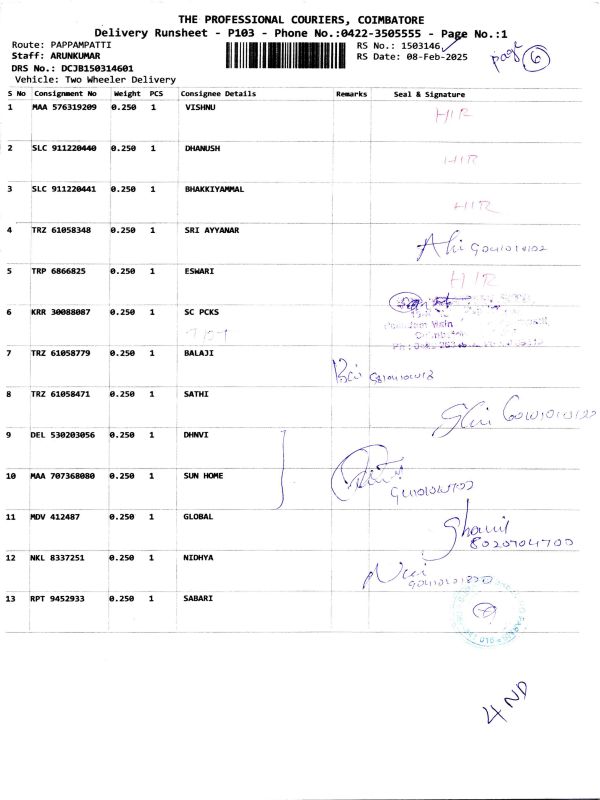 THE PROFESSIONAL COURIERS, COIMBATORE
Delivery Runsheet - P103 - Phone No.:0422-3505555 - Page No.:1
Route: PAPPAMPATTI RS No.: 1503146
Staff: ARUNKUMAR RS Date: 08-Feb-2025
page 6
DRS No.: DCJB150314601
Vehicle: Two Wheeler Delivery
S No Consignment No Weight PCS Consignee Details Remarks Seal & Signature
1 MAA 576319209 0.250 1 VISHNU HIR
2 SLC 911220440 0.250 1 DHANUSH HIR
3 SLC 911220441 0.250 1 BHAKKIYAMMAL HIR
4 TRZ 61058348 0.250 1 SRI AYYANAR
5 TRP 6866825 0.250 1 ESWARI HIR
6 KRR 30088087 0.250 1 SC PCKS
7 TRZ 61058779 0.250 1 BALAJI
8 TRZ 61058471 0.250 1 SATHI
9 DEL 530203056 0.250 1 DHNVI
10 MAA 707368080 0.250 1 SUN HOME
11 MDV 412487 0.250 1 GLOBAL
12 NKL 8337251 0.250 1 NIDHYA
13 RPT 9452933 0.250 1 SABARI
4 ND